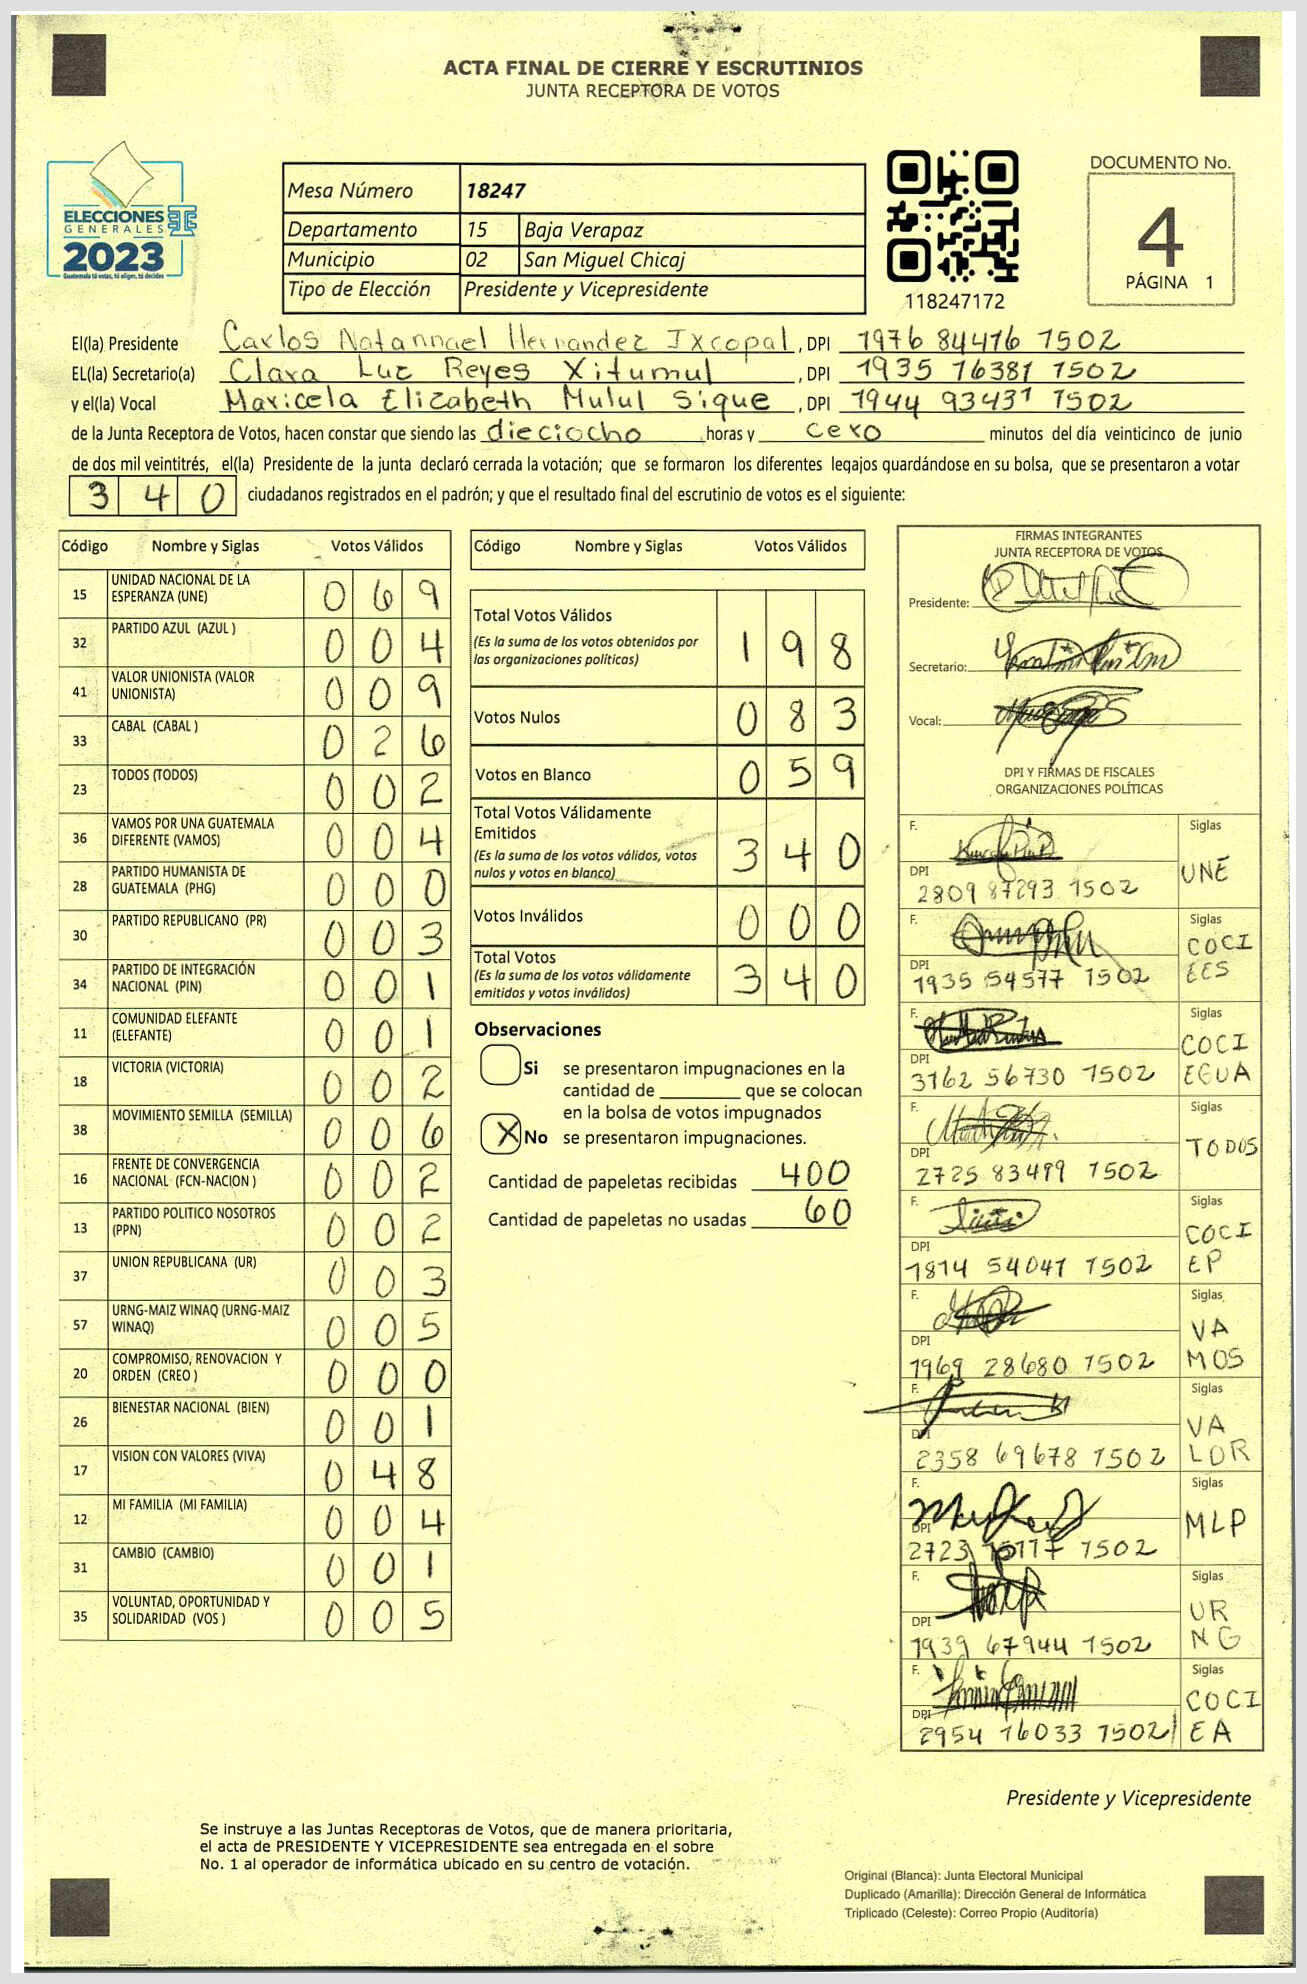 ACTA FINAL DE CIERRE Y ESCRUTINIOS
JUNTA RECEPTORA DE VOTOS
ELECCIONES
GENERALES
2023
Guatemala tú votas, tú eliges, tú decides
Mesa Número 18247
Departamento 15 Baja Verapaz
Municipio 02 San Miguel Chicaj
Tipo de Elección Presidente y Vicepresidente
118247172
DOCUMENTO No.
4
PÁGINA 1
El(la) Presidente Carlos Natannael Hernandez Ixcopal, DPI 1976 84416 1502
EL(la) Secretario(a) Clara Luz Reyes Xitumul, DPI 1935 16381 1502
y el(la) Vocal Maricela Elizabeth Mulul Sique, DPI 1944 93431 1502
de la Junta Receptora de Votos, hacen constar que siendo las dieciocho horas y cero minutos del día veinticinco de junio
de dos mil veintitrés, el(la) Presidente de la junta declaró cerrada la votación; que se formaron los diferentes legajos guardándose en su bolsa, que se presentaron a votar
340 ciudadanos registrados en el padrón; y que el resultado final del escrutinio de votos es el siguiente:
Código Nombre y Siglas Votos Válidos
15 UNIDAD NACIONAL DE LA ESPERANZA (UNE) 0 6 9
32 PARTIDO AZUL (AZUL ) 0 0 4
41 VALOR UNIONISTA (VALOR UNIONISTA) 0 0 9
33 CABAL (CABAL ) 0 2 6
23 TODOS (TODOS) 0 0 2
36 VAMOS POR UNA GUATEMALA DIFERENTE (VAMOS) 0 0 4
28 PARTIDO HUMANISTA DE GUATEMALA (PHG) 0 0 0
30 PARTIDO REPUBLICANO (PR) 0 0 3
34 PARTIDO DE INTEGRACIÓN NACIONAL (PIN) 0 0 1
11 COMUNIDAD ELEFANTE (ELEFANTE) 0 0 1
18 VICTORIA (VICTORIA) 0 0 2
38 MOVIMIENTO SEMILLA (SEMILLA) 0 0 6
16 FRENTE DE CONVERGENCIA NACIONAL (FCN-NACION ) 0 0 2
13 PARTIDO POLITICO NOSOTROS (PPN) 0 0 2
37 UNION REPUBLICANA (UR) 0 0 3
57 URNG-MAIZ WINAQ (URNG-MAIZ WINAQ) 0 0 5
20 COMPROMISO, RENOVACION Y ORDEN (CREO ) 0 0 0
26 BIENESTAR NACIONAL (BIEN) 0 0 1
17 VISION CON VALORES (VIVA) 0 4 8
12 MI FAMILIA (MI FAMILIA) 0 0 4
31 CAMBIO (CAMBIO) 0 0 1
35 VOLUNTAD, OPORTUNIDAD Y SOLIDARIDAD (VOS ) 0 0 5
Código Nombre y Siglas Votos Válidos
Total Votos Válidos 1 9 8
(Es la suma de los votos obtenidos por
las organizaciones políticas)
Votos Nulos 0 8 3
Votos en Blanco 0 5 9
Total Votos Válidamente
Emitidos 3 4 0
(Es la suma de los votos válidos, votos
nulos y votos en blanco)
Votos Inválidos 0 0 0
Total Votos 3 4 0
(Es la suma de los votos válidamente
emitidos y votos inválidos)
Observaciones
Si se presentaron impugnaciones en la
cantidad de ________ que se colocan
en la bolsa de votos impugnados
X No se presentaron impugnaciones.
Cantidad de papeletas recibidas 400
Cantidad de papeletas no usadas 60
FIRMAS INTEGRANTES
JUNTA RECEPTORA DE VOTOS
Presidente:
Secretario:
Vocal:
DPI Y FIRMAS DE FISCALES
ORGANIZACIONES POLÍTICAS
F. Siglas
DPI 2809 87293 1502 UNE
F. Siglas
DPI 1935 54577 1502 COCI EES
F. Siglas
DPI 3162 56730 1502 COCI EGUA
F. Siglas
DPI 2725 83499 1502 TODOS
F. Siglas
DPI 1814 54041 1502 COCI EP
F. Siglas
DPI 1969 28680 1502 VA MOS
F. Siglas
DPI 2358 69678 1502 VA LOR
F. Siglas
DPI 2723 1502 MLP
F. Siglas
DPI 1939 67944 1502 UR NG
F. Siglas
DPI 2954 16033 1502 COCI EA
Presidente y Vicepresidente
Se instruye a las Juntas Receptoras de Votos, que de manera prioritaria,
el acta de PRESIDENTE Y VICEPRESIDENTE sea entregada en el sobre
No. 1 al operador de informática ubicado en su centro de votación.
Original (Blanca): Junta Electoral Municipal
Duplicado (Amarilla): Dirección General de Informática
Triplicado (Celeste): Correo Propio (Auditoría)